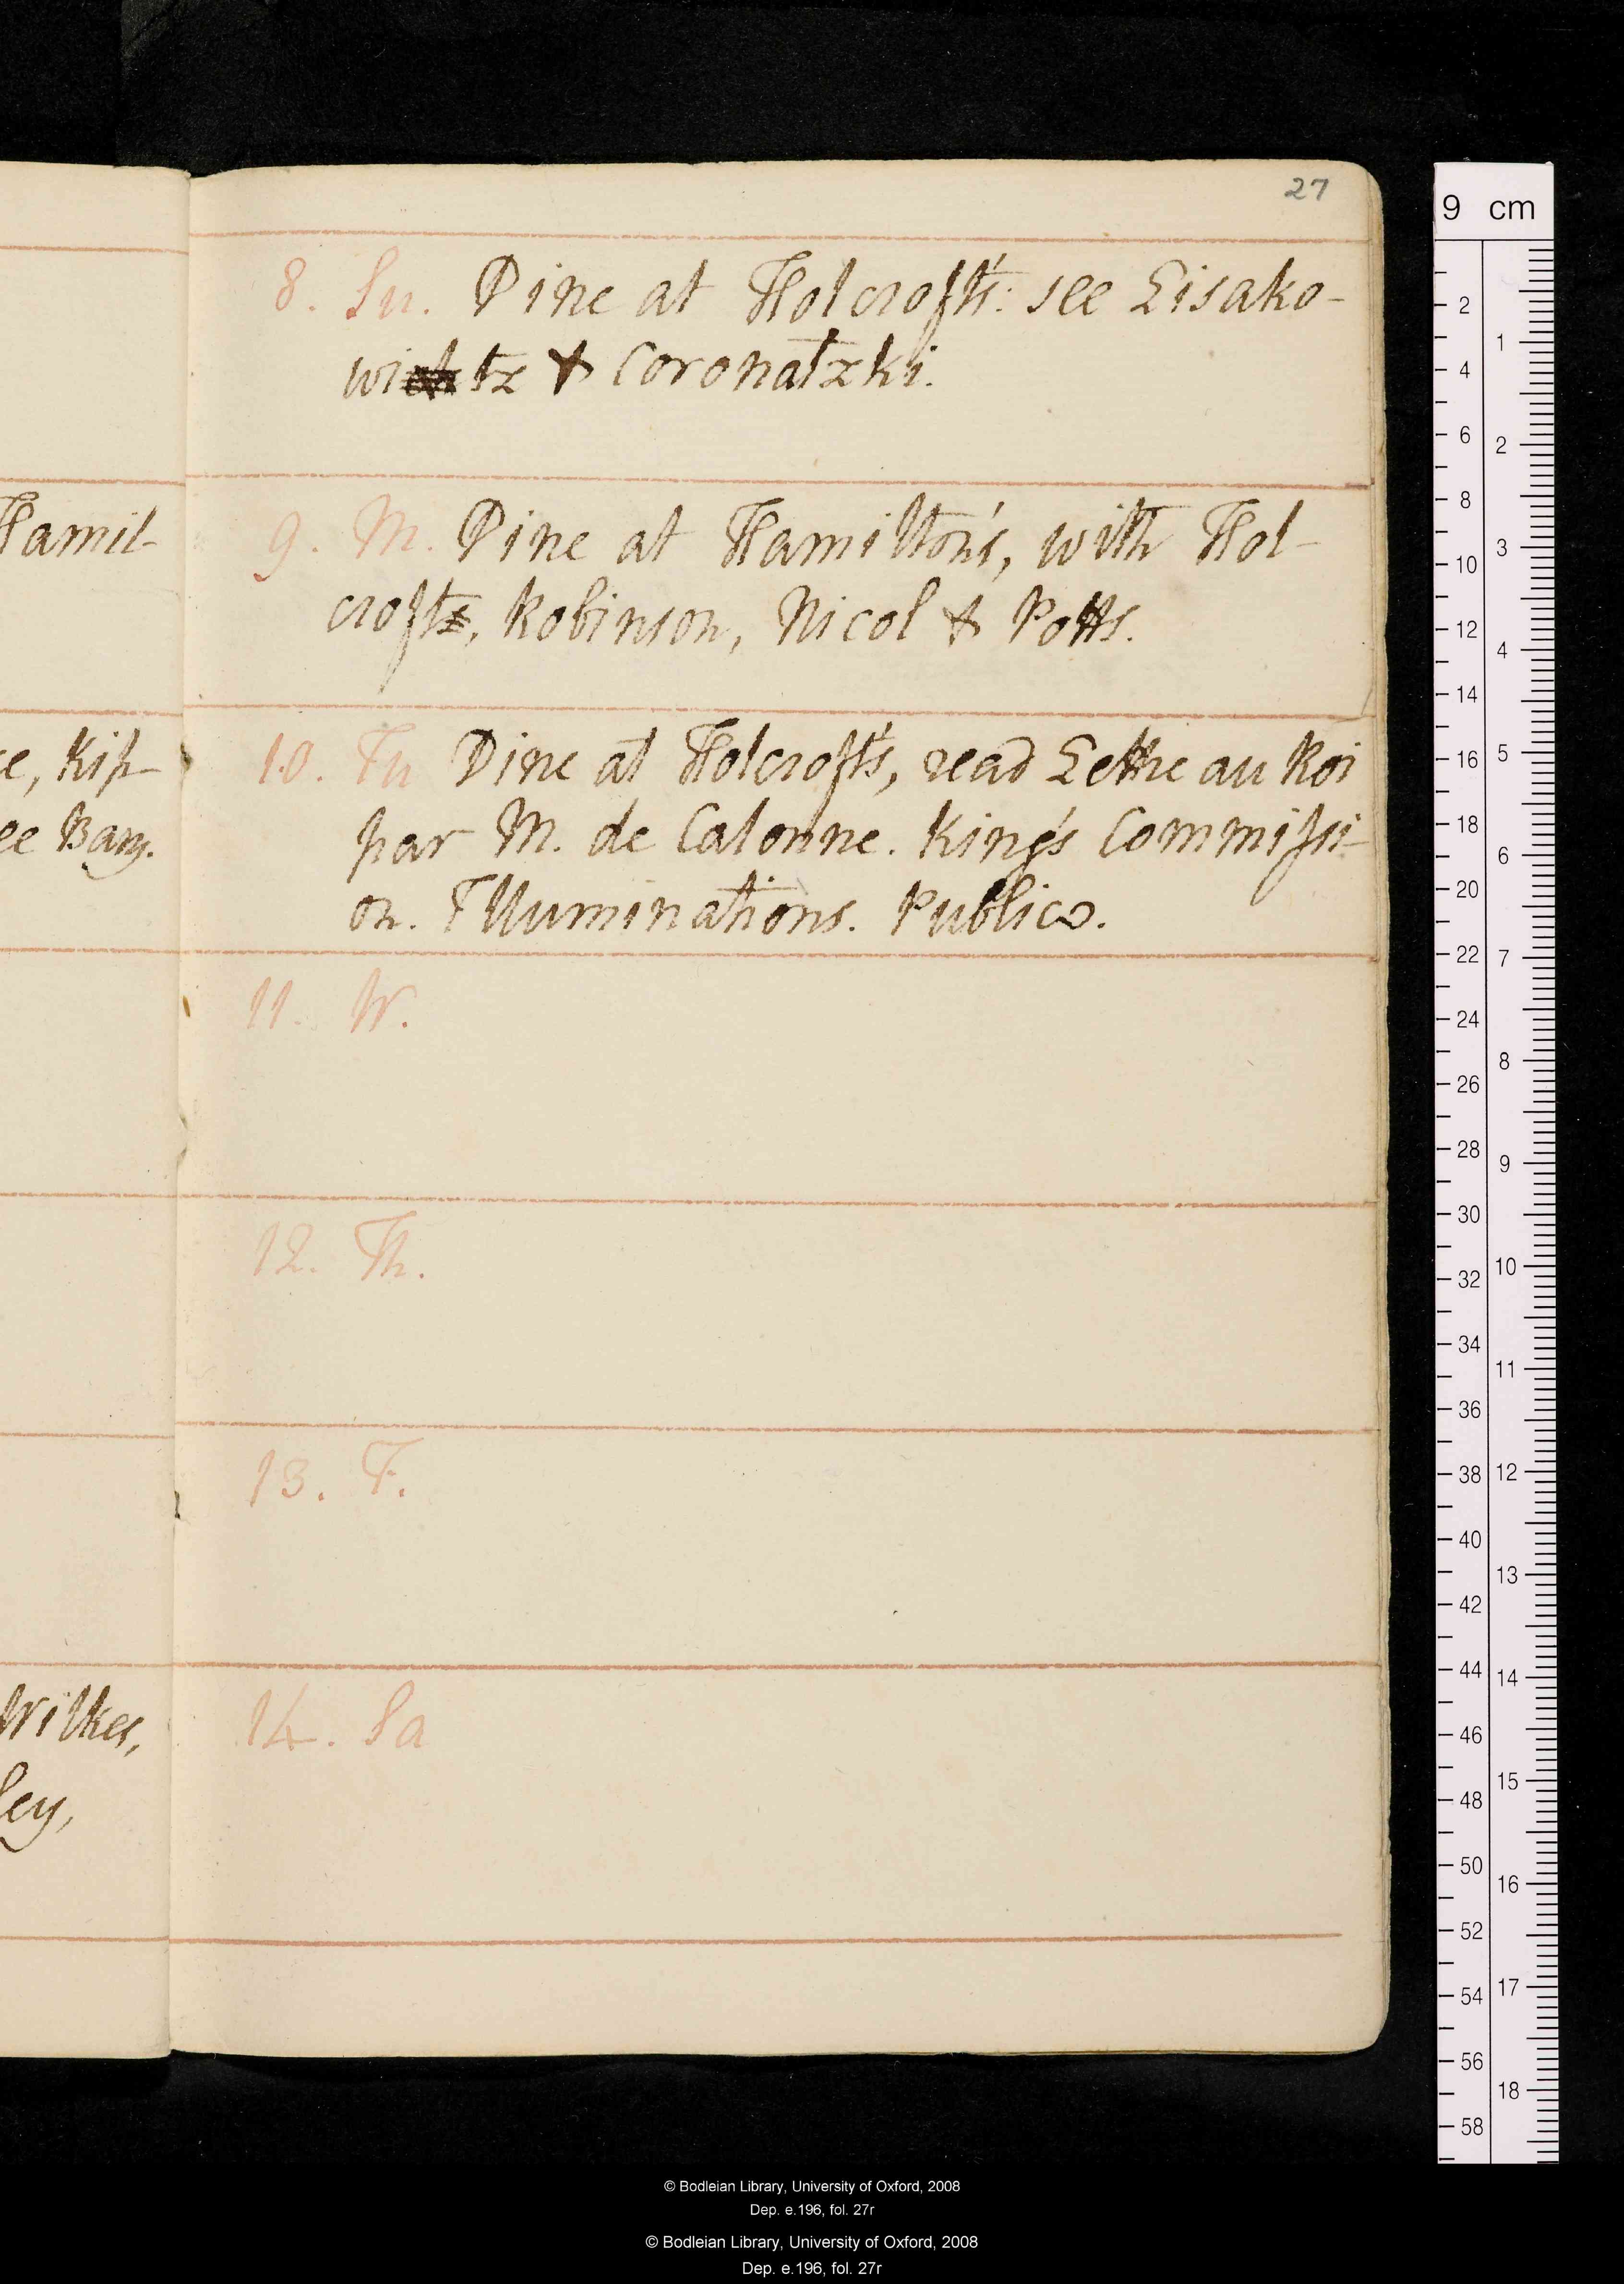 27
8. Su. Dine at Holcroft's: see Lisako-
witz & Coronatzki.
Hamil-
9. M. Dine at Hamilton's, with Hol-
croft, Robinson, Nicol & Potts.
10. Tu Dine at Holcroft's, read Lettre au Roi
par M. de Calonne. King's Commissi-
on. Illuminations. Publico.
ee Barry.
11. W.
12. Th.
13. F.
14. Sa
Wilkes,
ley,
9 cm
2
4
6
8
10
12
14
16
18
20
22
24
26
28
30
32
34
36
38
40
42
44
46
48
50
52
54
56
58
1
2
3
4
5
6
7
8
9
10
11
12
13
14
15
16
17
18
© Bodleian Library, University of Oxford, 2008
Dep. e.196, fol. 27r
© Bodleian Library, University of Oxford, 2008
Dep. e.196, fol. 27r